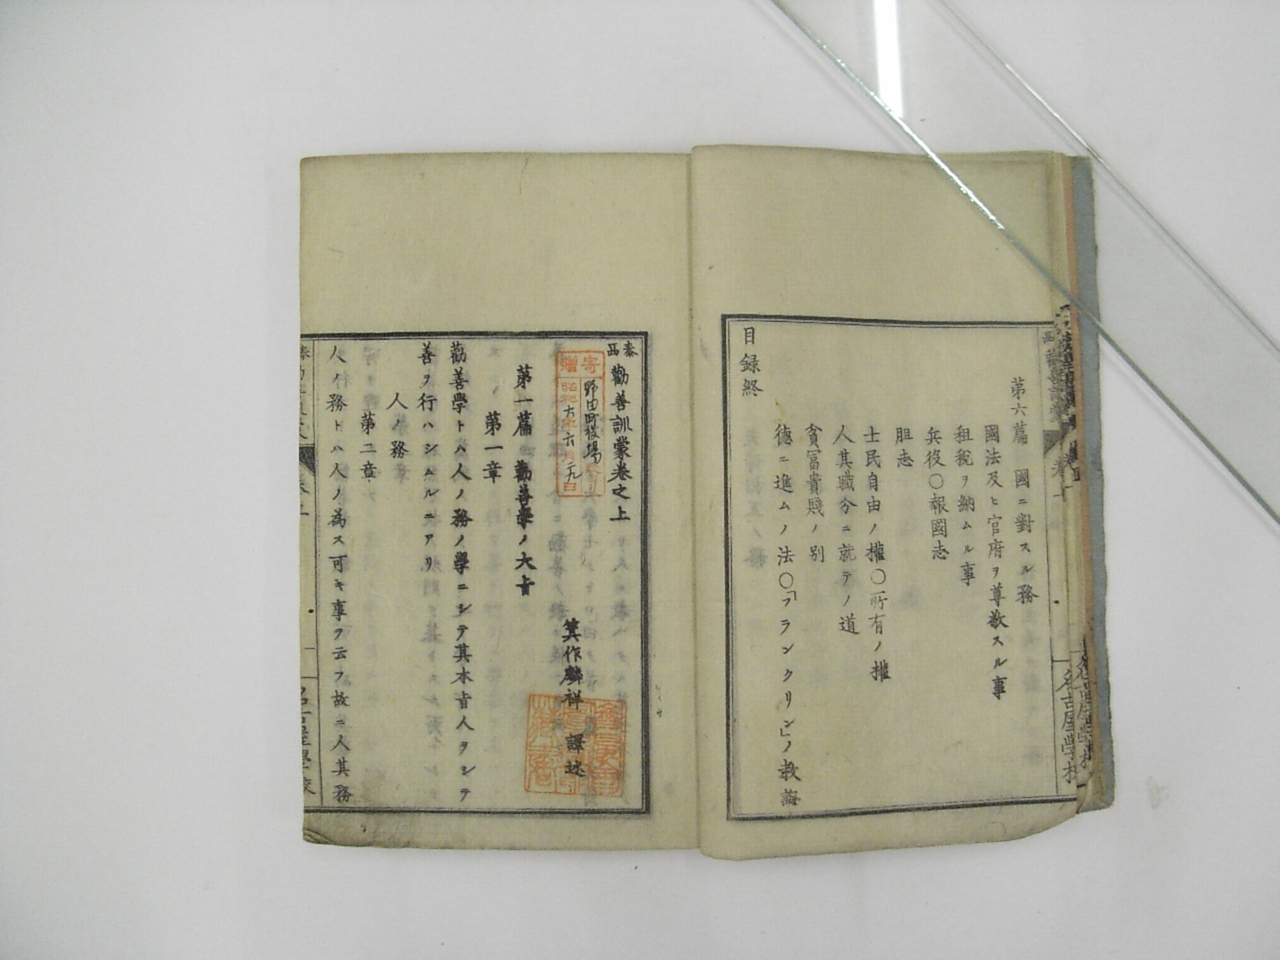 第六篇 國ニ對スル務
國法及ヒ官府ヲ尊敬スル事
租税ヲ納ムル事
兵役〇報國志
胆志
士民自由ノ權〇所有ノ權
人其職分ニ就テノ道
貪富貴賤ノ別
德ニ進ムノ法〇「フランクリン」ノ教誨
目録終
名古屋學校
泰西勸善訓蒙卷之上
寄贈
野田町役場
昭和六年六月九日
箕作麟祥 譯述
第一篇 勸善學ノ大旨
第一章
勸善學トハ人ノ務ノ學ニシテ其本旨人ヲシテ
善ヲ行ハシムルニアリ
人ノ務
第二章
人ノ務トハ人ノ為ス可キ事ヲ云フ故ニ人其務